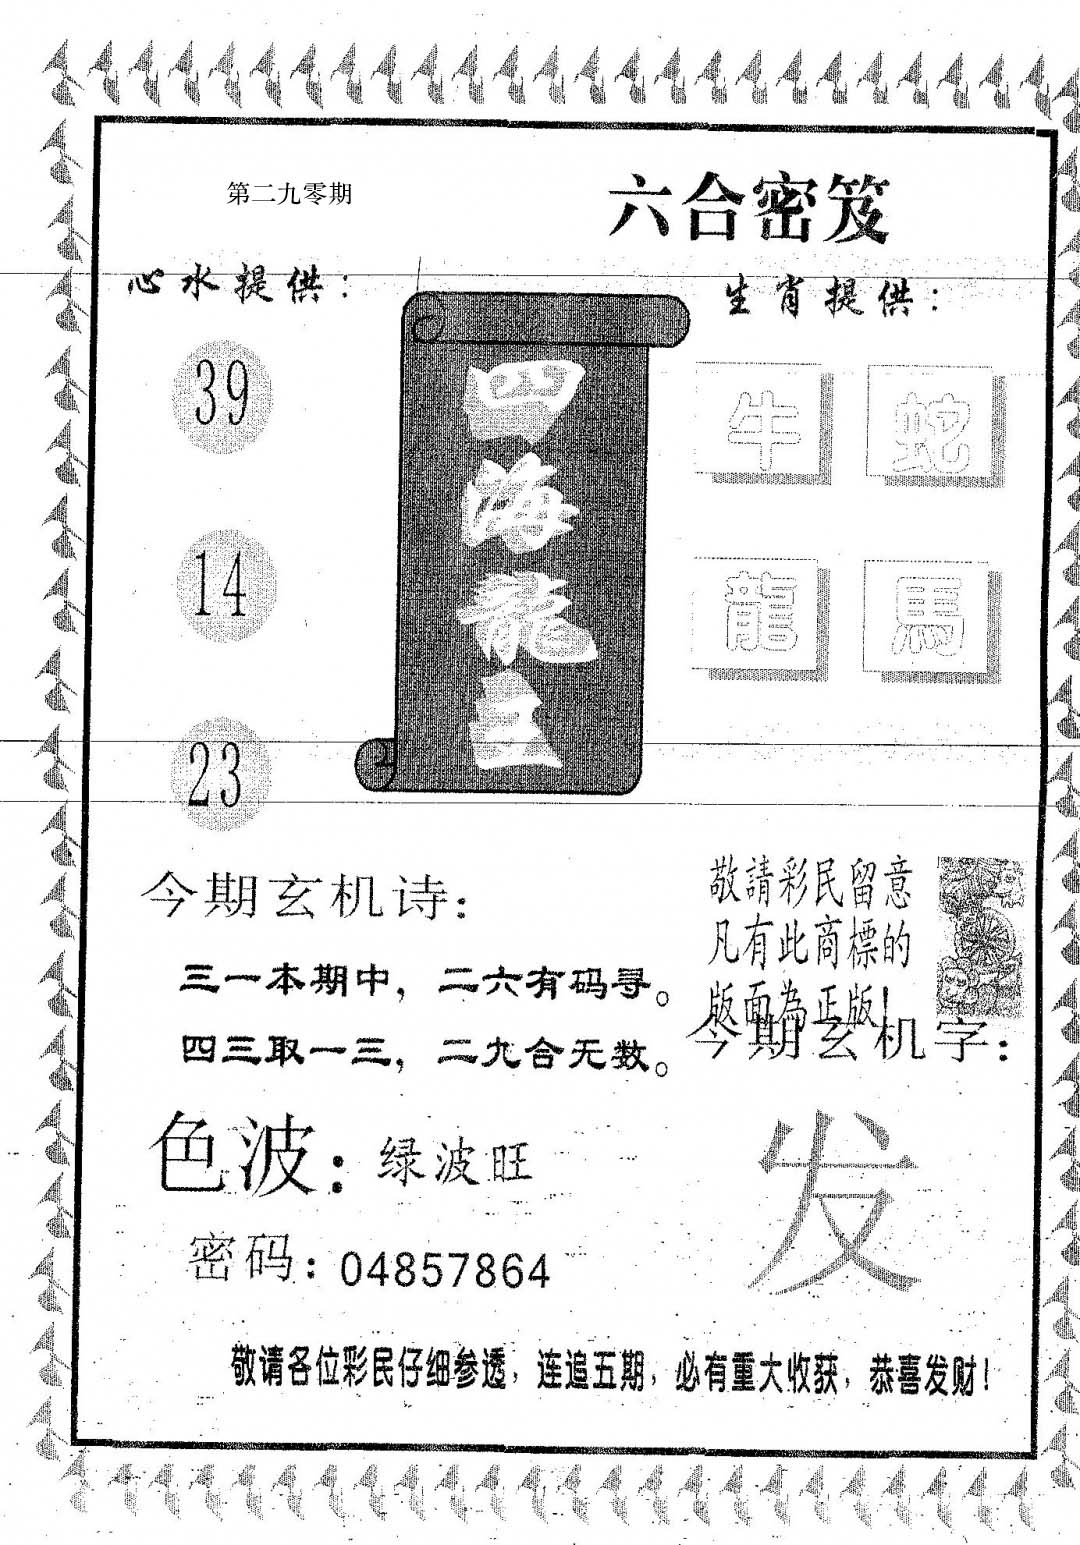 第二九零期
六合密笈
心水提供：
生肖提供：
39
14
23
四海龍王
牛
蛇
龍
馬
今期玄机诗：
三一本期中，二六有码寻。
四三取一三，二九合无数。
敬請彩民留意
凡有此商標的
版面為正版！
今期玄机字：
发
色波：绿波旺
密码：04857864
敬请各位彩民仔细参透，连追五期，必有重大收获，恭喜发财！